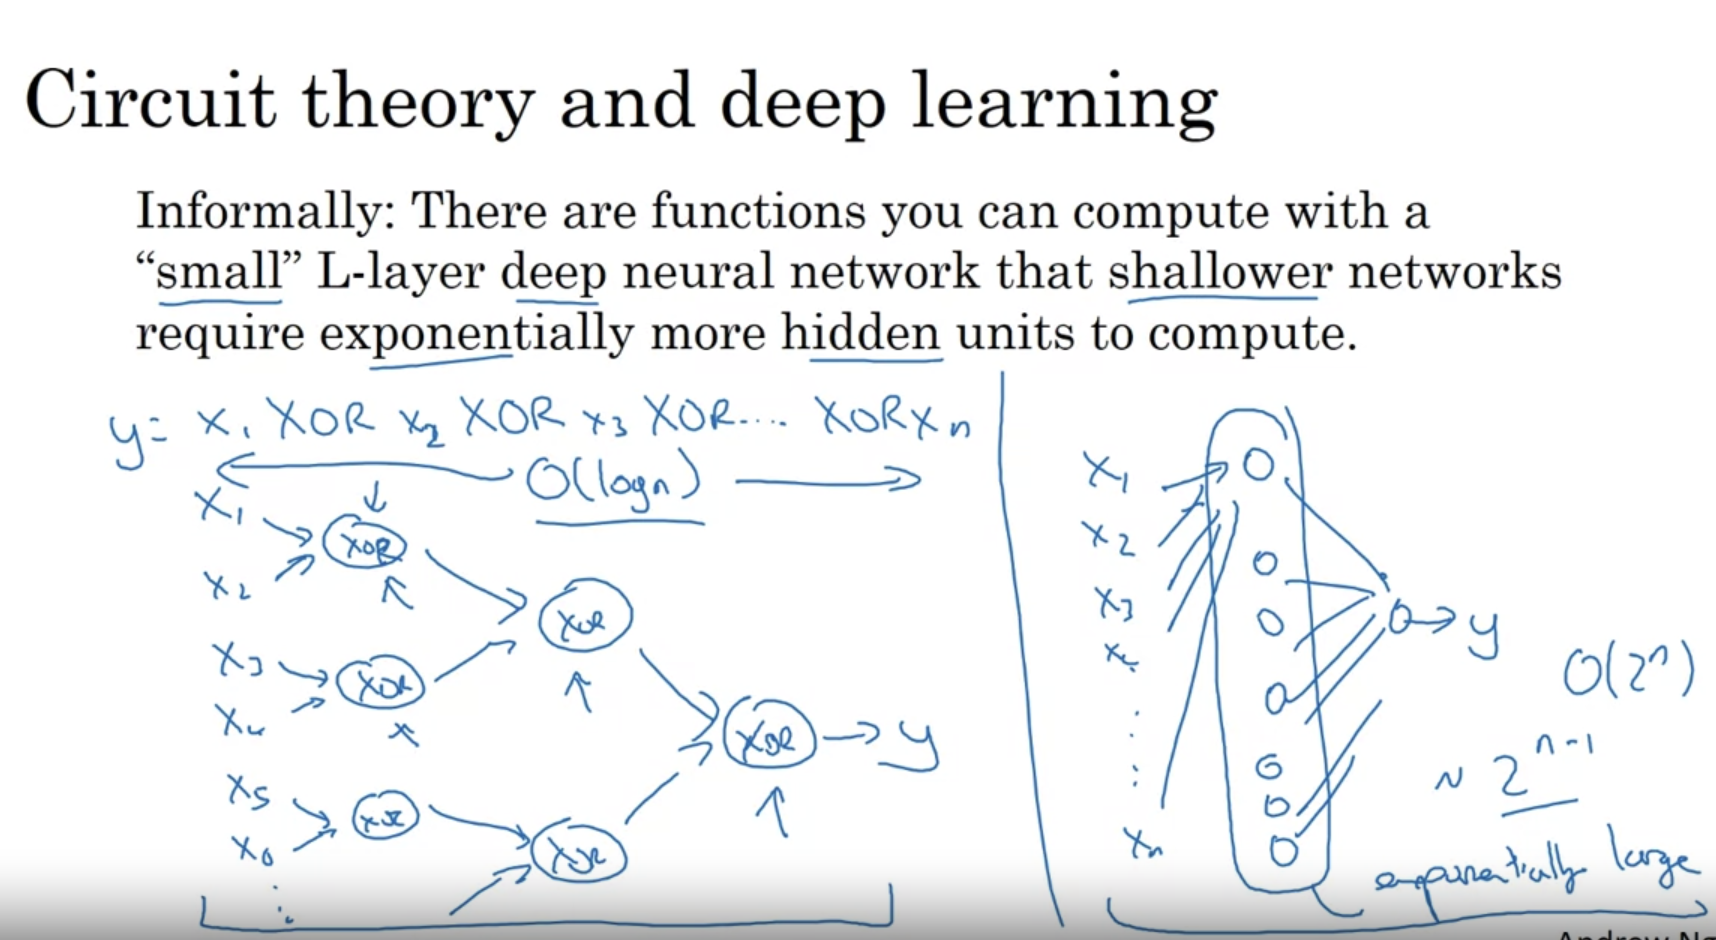 Circuit theory and deep learning
Informally: There are functions you can compute with a
“small” L-layer deep neural network that shallower networks
require exponentially more hidden units to compute.
y= x₁ XOR x₂ XOR x₃ XOR.... XOR xₙ
O(log n)
x₁
XOR
x₂
XOR
x₃
XOR
x₄
XOR → y
x₅
XOR
x₆
XOR
x₁
x₂
x₃
x₄
xₙ
→ y
O(2ⁿ)
~ 2ⁿ⁻¹
exponentially large